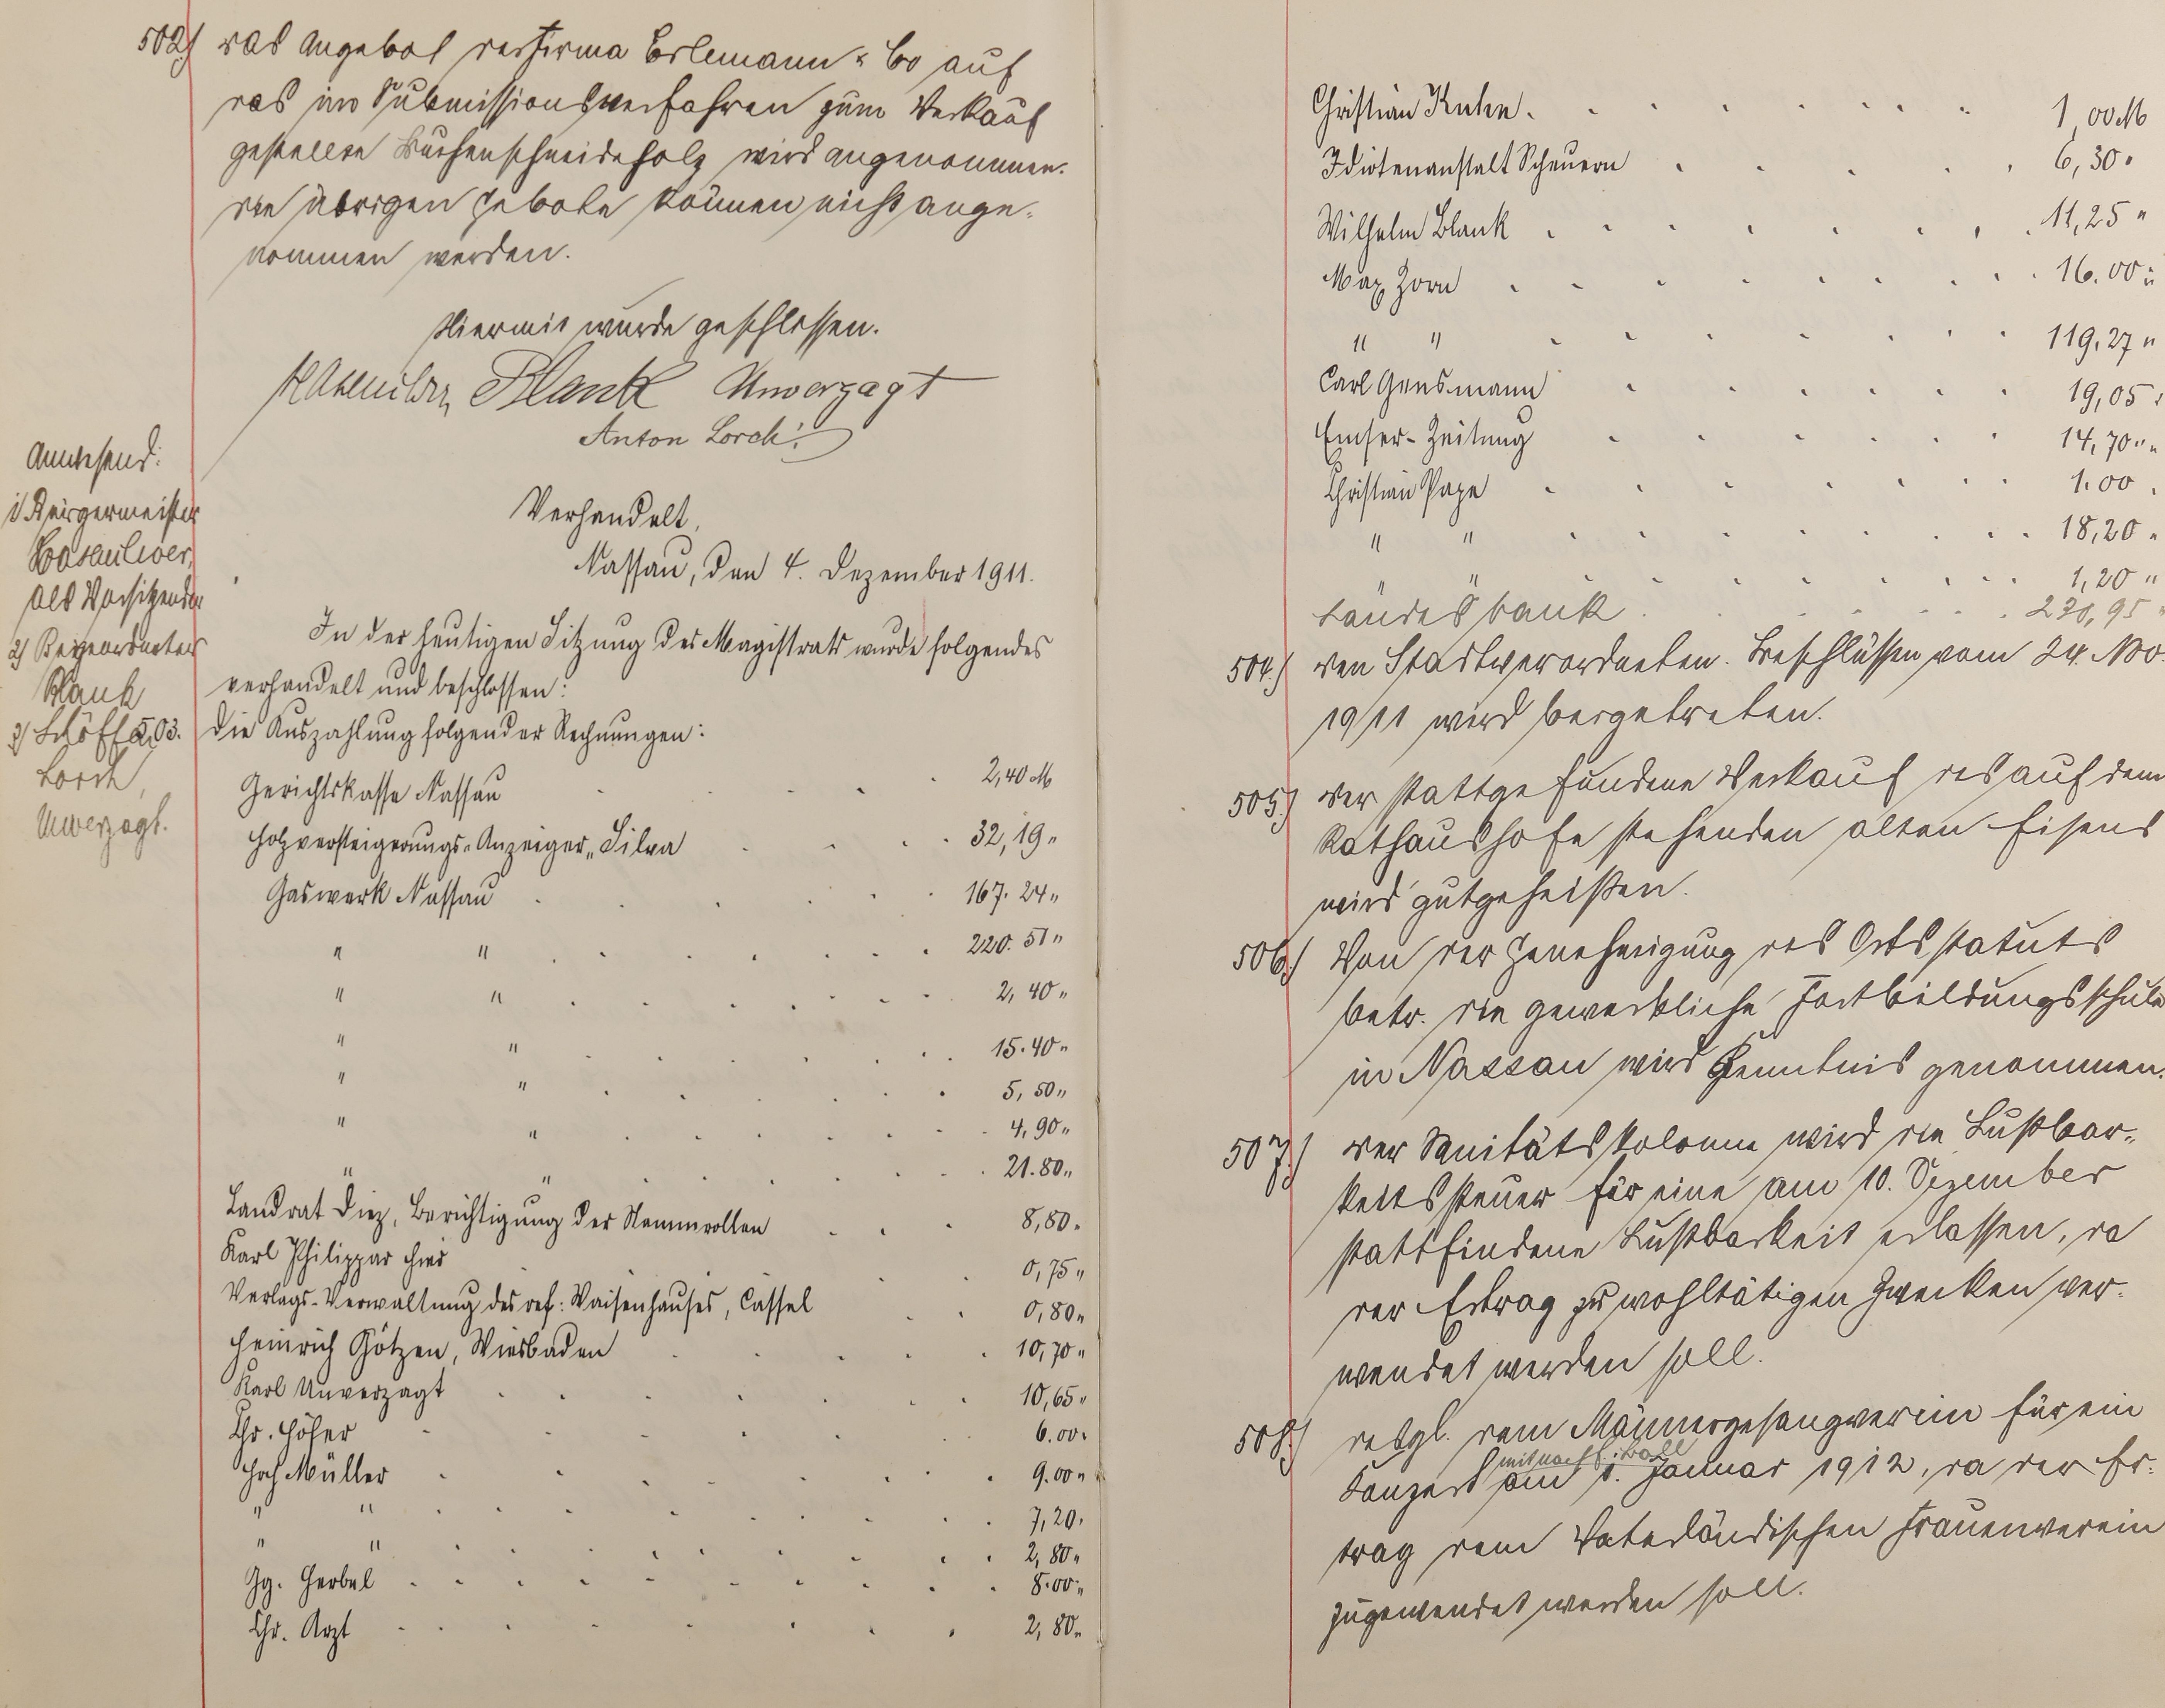 502.) Das Angebot der Firma Erlemann & Co auf
das im Submissionsverfahren zum Verkauf
gestellte Buchenschneideholz wird angenommen.
Die übrigen Gebote können nicht ange-
nommen werden.
Hiermit wurde geschlossen.
Hasenclever, Blank Unverzagt
Anton Lorch.
Anwesend:
1) Bürgermeister
Hasenclever,
als Vorsitzender
2) Beigeordneter
Blank
3) Schöffe
Lorch,
Unverzagt.
Verhandelt,
Nassau, den 4. Dezember 1911.
In der heutigen Sitzung des Magistrats wurde folgendes
verhandelt und beschlossen:
503. Die Auszahlung folgender Rechnungen:
Gerichtskasse Nassau 2,40 M
Holzversteigerungs-Anzeiger „Silva 32,19 „
Gaswerk Nassau 167.24 „
„ „ 220.51 „
„ „ 2,40 „
„ „ 15.40 „
„ „ 5,50 „
„ „ 4,90 „
„ „ 21.80 „
Landrat Diez, Berichtigung der Stammrollen 8,80 „
Karl Philippar hier 0,75 „
Verlags-Verwaltung des ref: Waisenhauses, Cassel 0,80 „
Heinrich Götzen, Wiesbaden 10,70 „
Karl Unverzagt 10,65 „
Chr. Höfer 6.00 „
Joh Müller 9.00 „
„ „ 7,20 „
„ „ 2,80 „
Gg. Herbel 8.00 „
Chr. Arzt 2,80 „
Christian Kuhn 1,00 M
Idiotenanstalt Scheuern 6,30 „
Wilhelm Blank 11,25 „
Max Zorn 16.00 „
„ „ 119,27 „
Carl Gensmann 19,05 „
Emser-Zeitung 14,70 „
Christian Pape 1.00 „
„ „ 18,20 „
„ „ 1,20 „
Landesbank 230,95 „
504.) Den Stadtverordneten. Beschlüssen vom 24. Nov.
1911 wird beigetreten.
505.) Der stattgefundene Verkauf des auf dem
Rathaushofe stehenden alten Eisens
wird gutgeheißen.
506.) Von der Genehmigung des Ortsstatuts
betr. die gewerbliche Fortbildungsschule
in Nassau wird Kenntnis genommen.
507.) Der Sanitätskolonne wird die Lustbar-
keitssteuer für eine am 10. Dezember
stattfindene Lustbarkeit erlassen, da
der Ertrag zu wohltätigen Zwecken ver-
wendet werden soll.
508.) Desgl. dem Männergesangverein für ein
mit nachf. Ball
Konzert am 1. Januar 1912, da der Er-
trag dem Vaterländischen Frauenverein
zugewendet werden soll.